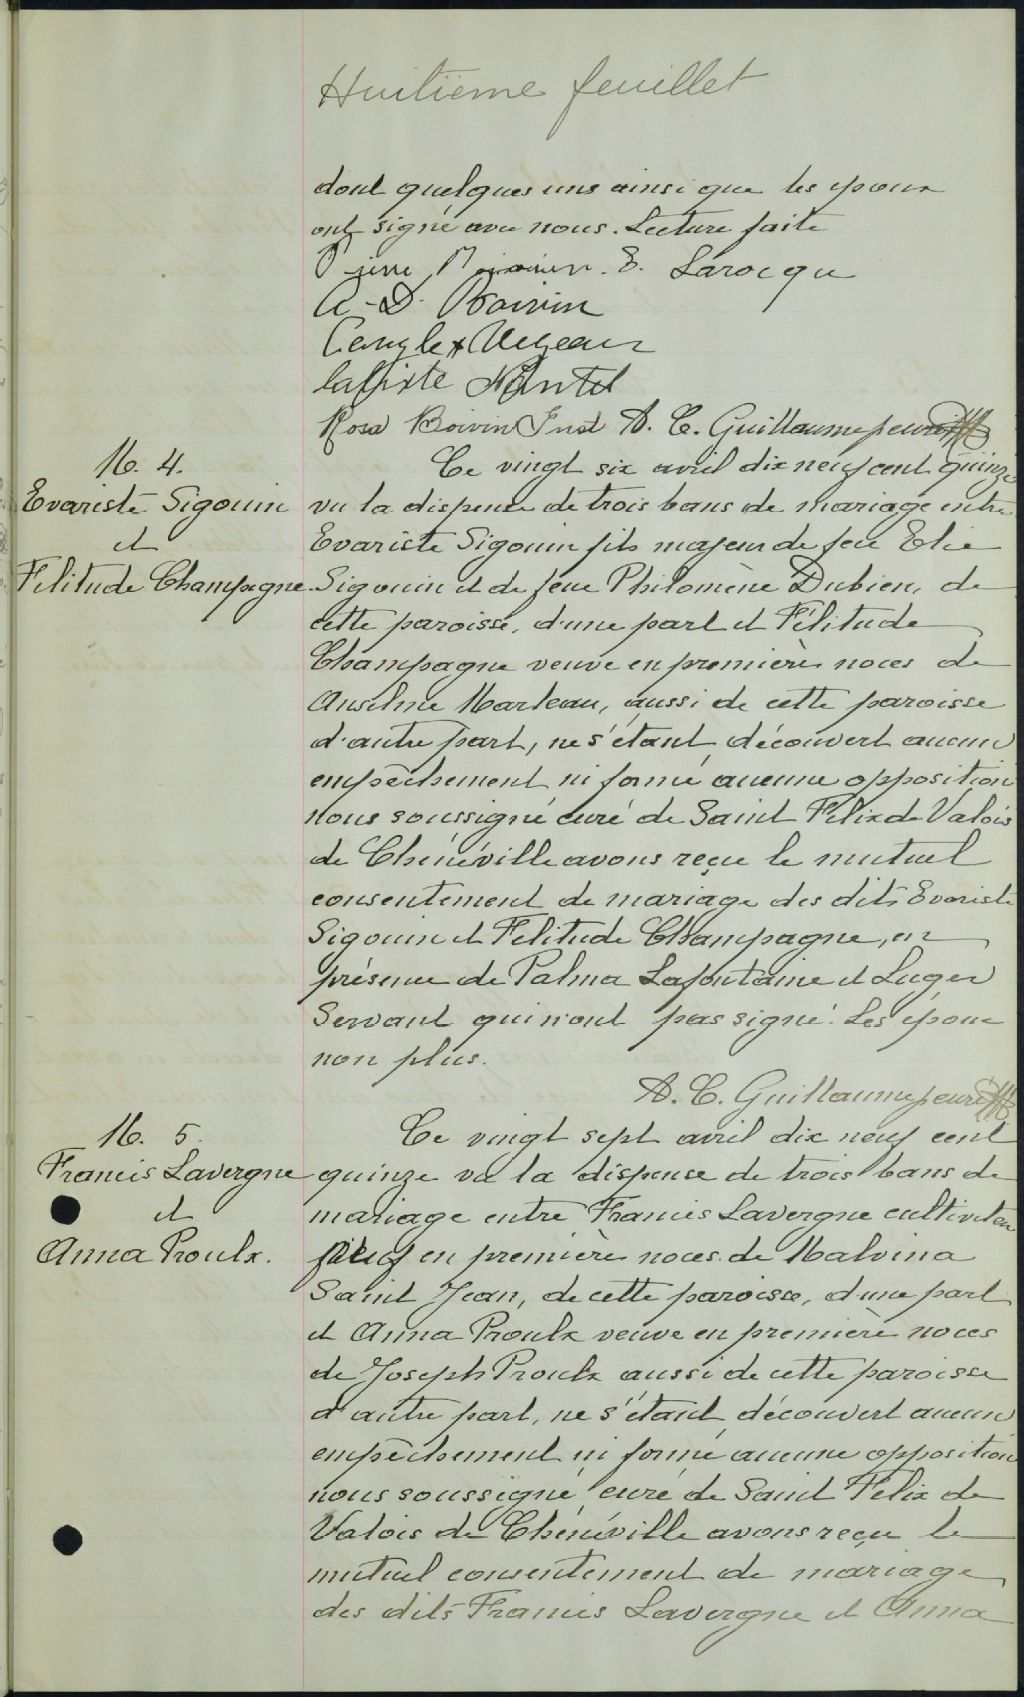 Huitième feuillet
dont quelques uns ainsi que les époux
ont signé avec nous. Lecture faite
Pierre E. Larocque
A-D. Boivin
lafixte Nantel
Rosa Boivin Inst A. C. Guillaume ptre curé
M. 4.
Evariste Sigouin
et
Félitude Champagne.
Ce vingt six avril dix neuf cent quinze
vu la dispense de trois bans de mariage entre
Evariste Sigouin fils majeur de feu Elie
Sigouin et de feue Philomène Dubien, de
cette paroisse, d'une part et Félitude
Champagne veuve en première noces de
Anselme Marleau, aussi de cette paroisse
d'autre part, ne s'étant découvert aucun
empêchement ni formé aucune opposition
nous soussigné curé de Saint Félix de Valois
de Chénéville avons reçu le mutuel
consentement de mariage des dits Evariste
Sigouin et Félitude Champagne, en
présence de Palma Lafontaine et Luger
Servant qui n'ont pas signé. Les époux
non plus.
A. C. Guillaume ptre curé
M. 5.
Francis Lavergne
et
Anna Proulx.
Ce vingt sept avril dix neuf cent
quinze vu la dispense de trois bans de
mariage entre Francis Lavergne cultivateur
veuf en première noces de Malvina
Saint Jean, de cette paroisse, d'une part
et Anna Proulx veuve en première noces
de Joseph Proulx aussi de cette paroisse
d'autre part, ne s'étant découvert aucun
empêchement ni formé aucune opposition
nous soussigné curé de Saint Félix de
Valois de Chénéville avons reçu le
mutuel consentement de mariage
des dits Francis Lavergne et Anna